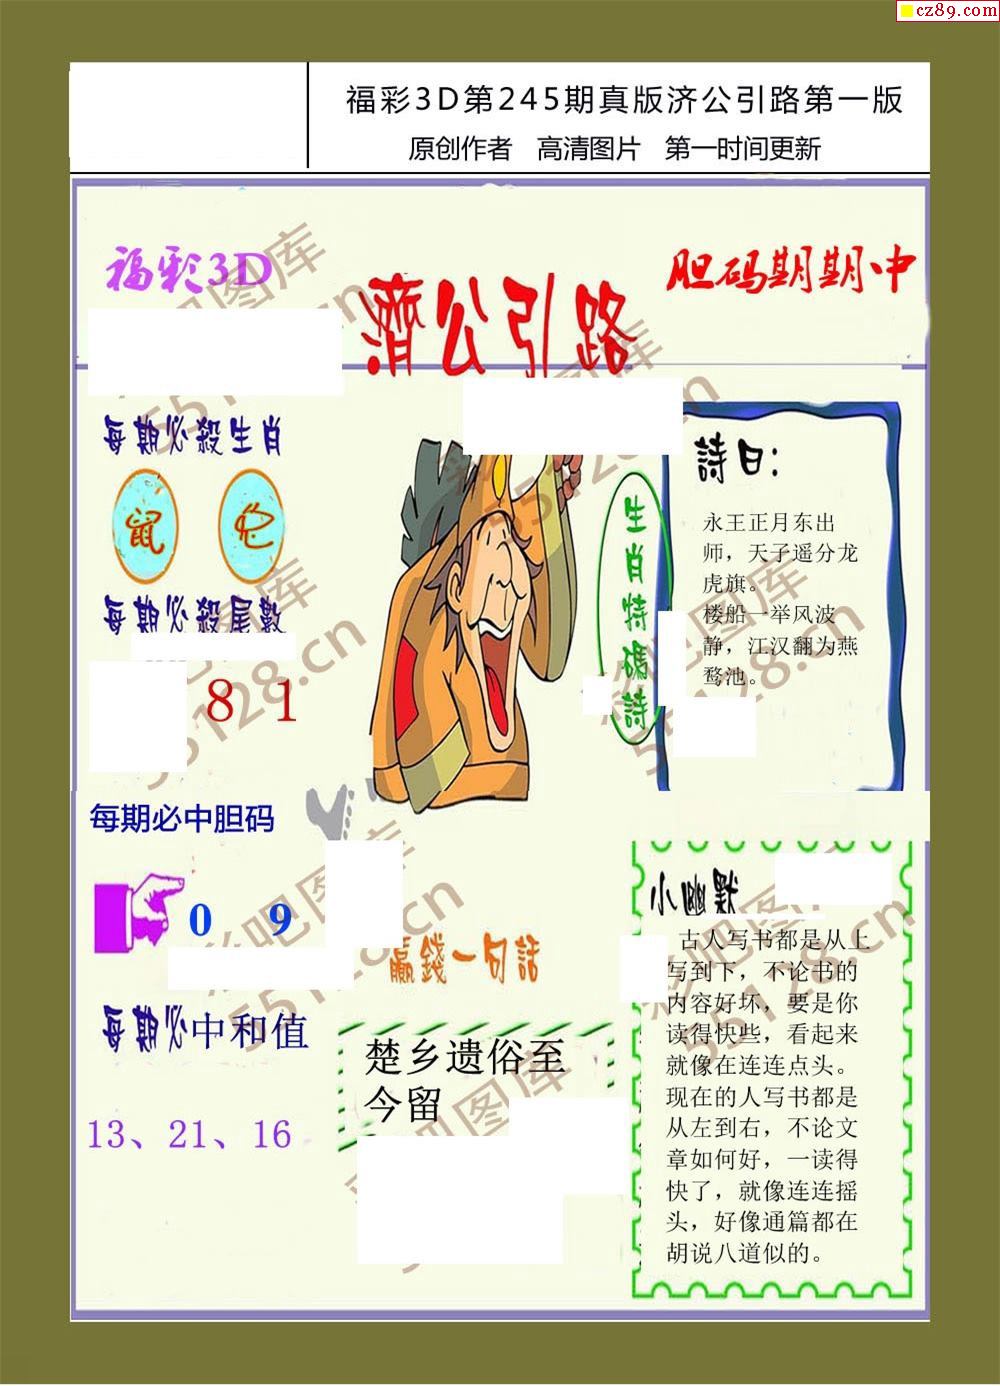 cz89.com
福彩3D第245期真版济公引路第一版
原创作者 高清图片 第一时间更新
福彩3D
胆码期期中
濟公引路
每期必殺生肖
鼠
每期必殺尾數
8 1
每期必中胆码
0 9
每期必中和值
13、21、16
生肖特碼詩
詩曰:
永王正月东出
师，天子遥分龙
虎旗。
楼船一举风波
静，江汉翻为燕
鹜池。
赢錢一句話
楚乡遗俗至
今留
小幽默
古人写书都是从上
写到下，不论书的
内容好坏，要是你
读得快些，看起来
就像在连连点头。
现在的人写书都是
从左到右，不论文
章如何好，一读得
快了，就像连连摇
头，好像通篇都在
胡说八道似的。
彩吧图库
55128.cn